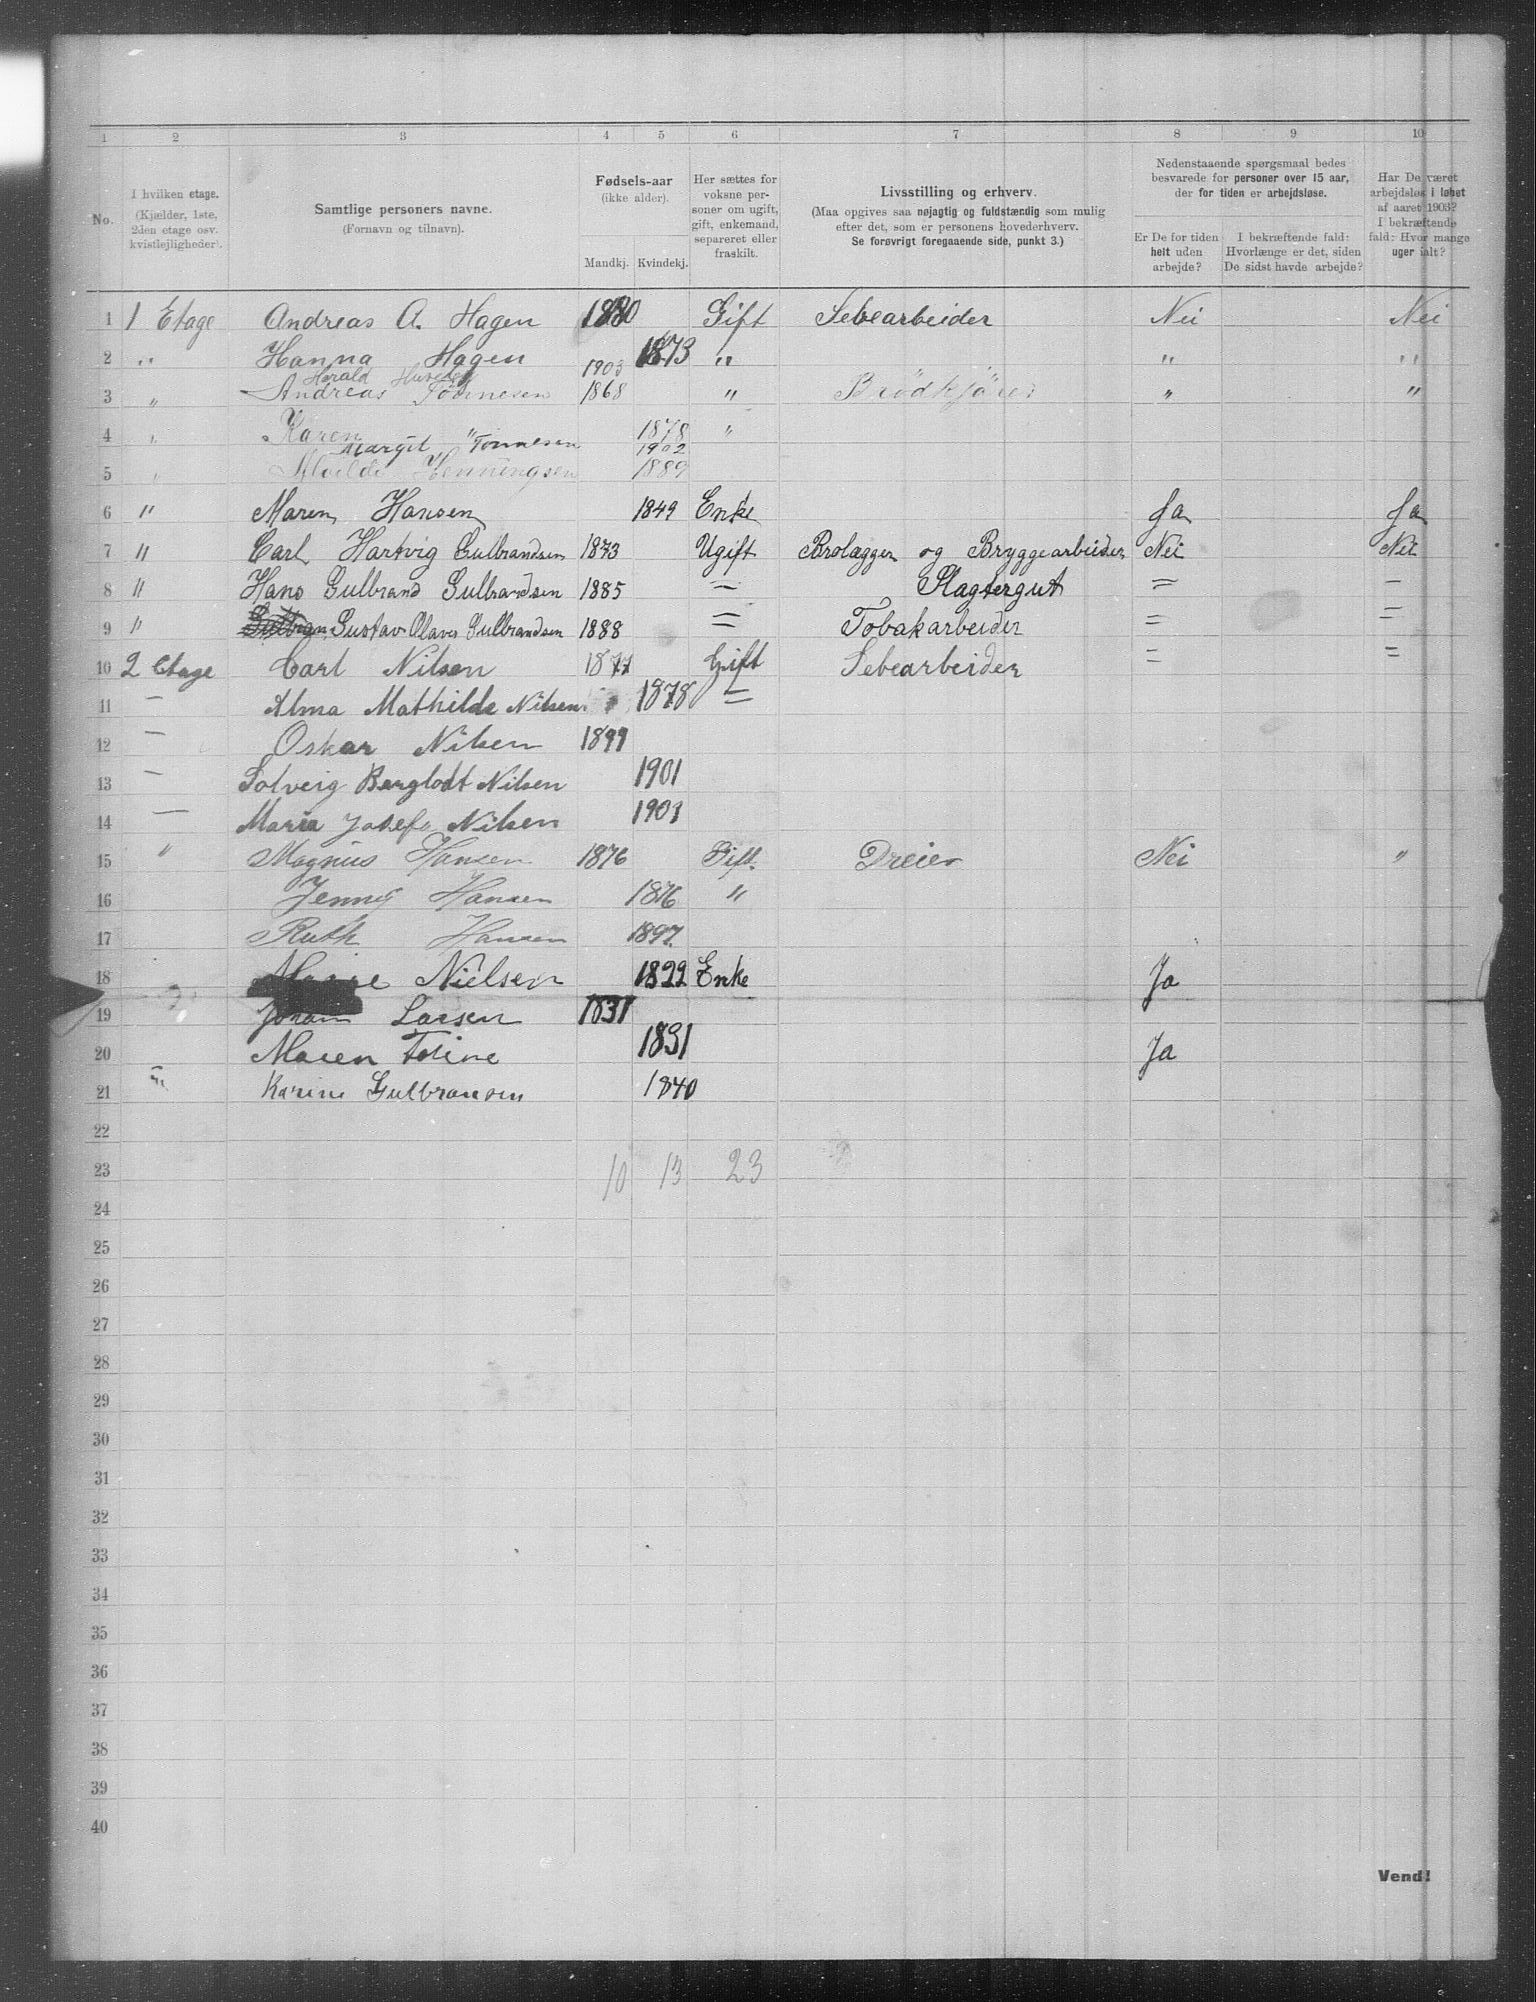 1 2 3 4 5 6 7 8 9 10
No.
I hvilken etage.
(Kjælder, 1ste,
2den etage osv.
kvistlejligheder).
Samtlige personers navne.
(Fornavn og tilnavn).
Fødsels-aar
(ikke alder).
Mandkj. Kvindekj.
Her sættes for
voksne per-
soner om ugift,
gift, enkemand,
separeret eller
fraskilt.
Livsstilling og erhverv.
(Maa opgives saa nøjagtig og fuldstændig som mulig
efter det, som er personens hovederhverv.
Se forøvrigt foregaaende side, punkt 3.)
Nedenstaaende spørgsmaal bedes
besvarede for personer over 15 aar,
der for tiden er arbejdsløse.
Er De for tiden
helt uden
arbejde?
I bekræftende fald:
Hvorlænge er det, siden
De sidst havde arbejde?
Har De været
arbejdsløs i løbet
af aaret 1903?
I bekræftende
fald: Hvor mange
uger ialt?
1 1 Etage Andreas A. Hagen 1880 Gift Sebearbeider Nei Nei
2 " Hanna Hagen 1873 " " "
Harald 1903
3 " Andreas Tönnesen 1868 " Brödkjörer " "
4 " Karen " 1878 "
Margit Tönnesen 1902
5 " Henningsen 1889
6 " Maren Hansen 1849 Enke Ja Ja
7 " Carl Hartvig Gulbrandsen 1873 Ugift Brolægger og Bryggearbeider Nei Nei
8 " Hans Gulbrand Gulbrandsen 1885 = Slagtergut = =
9 " Gustav Olaves Gulbrandsen 1888 = Tobakarbeider = =
10 2 Etage Carl Nilsen 1877 Gift Sebearbeider = =
11 — Alma Mathilde Nilsen 1878 =
12 — Oskar Nilsen 1899
13 — Solveig Bergliodt Nilsen 1901
14 — Maria Josefa Nilsen 1901
15 " Magnus Hansen 1876 Gift. Dreier Nei "
16 Jenny Hansen 1876 "
17 Ruth Hansen 1897
18 Nielsen 1822 Enke Ja
19 Johan Larsen 1831
20 Maren Foline 1831 Ja
21 Karine Gulbransen 1840
22
23 10 13 23
24
25
26
27
28
29
30
31
32
33
34
35
36
37
38
39
40
Vend!